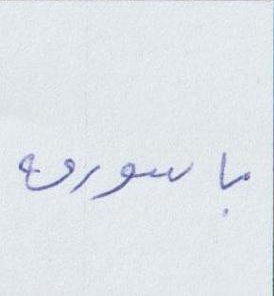 باسورى